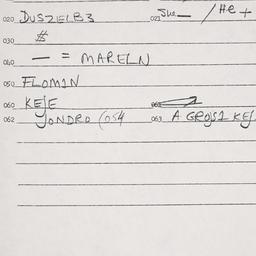 020 DUSZELB3 023 Sue_ / He +
030 $
040 — = MARELN
050 FLOMIN
060 KEJE
062 JONDRO (054 063 A GROSZ KEJ